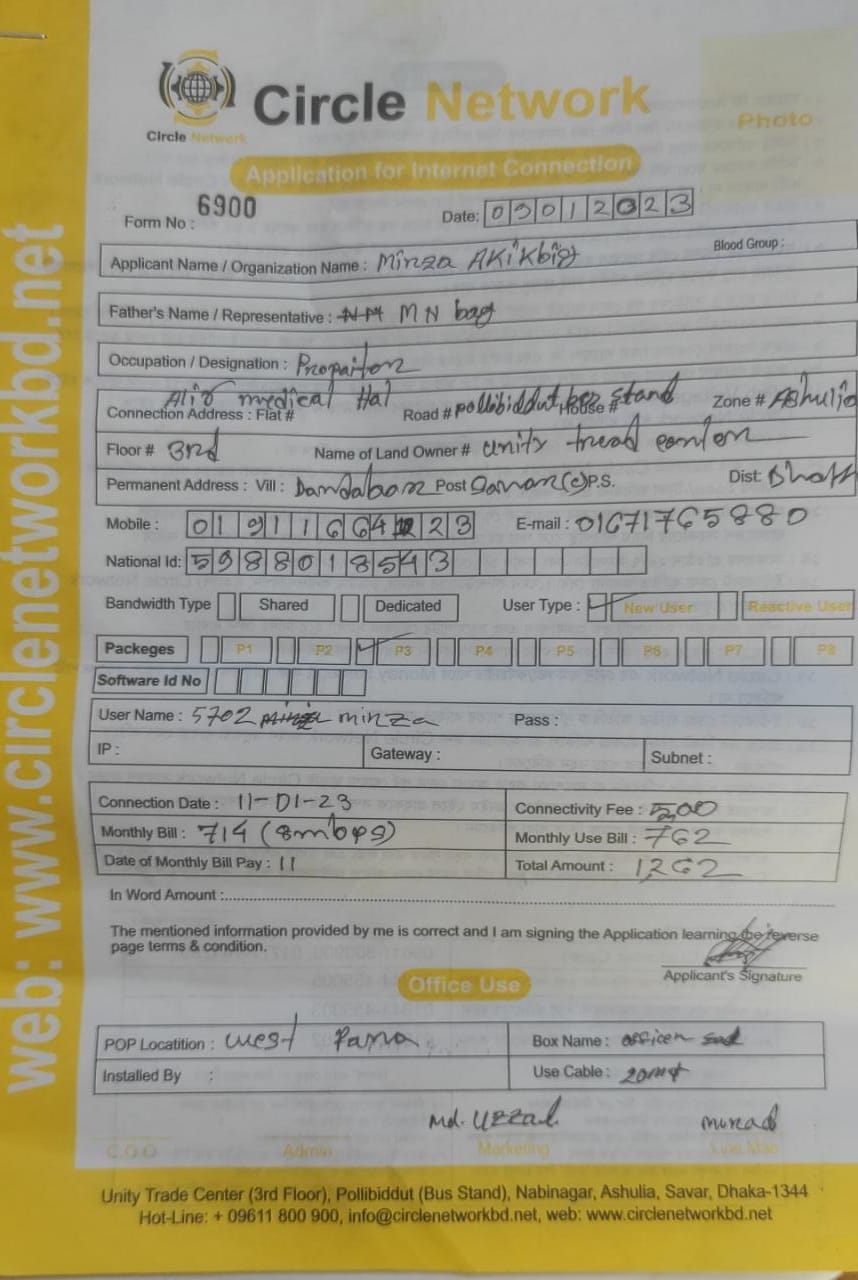 Circle Network
Circle Network
Photo
Application for Internet Connection
Form No : 6900
Date: 09012023
Applicant Name / Organization Name : Minza AKikbig
Blood Group :
Father's Name / Representative : M N bag
Occupation / Designation : Propaiton
Alif medical Hal
Connection Address : Flat # Road # pollibiddut, House # bas stand Zone # Ashulia
Floor # 3rd Name of Land Owner # unity tread centor
Permanent Address : Vill : Dandabar Post Savar (c) P.S. Dist: Dhaka
Mobile : 01911664 23 E-mail : 01671765880
National Id: 5988018543
Bandwidth Type Shared Dedicated User Type : New User Reactive User
Packeges P1 P2 P3 P4 P5 P6 P7 P8
Software Id No
User Name : 5702 minza Pass :
IP : Gateway : Subnet :
Connection Date : 11-01-23 Connectivity Fee : 500
Monthly Bill : 714 (8mbps) Monthly Use Bill : 762
Date of Monthly Bill Pay : 11 Total Amount : 1262
In Word Amount :
The mentioned information provided by me is correct and I am signing the Application learning the reverse
page terms & condition.
Applicant's Signature
Office Use
POP Locatition : west Para Box Name : officer
Installed By : Use Cable : 20mt
Md. Uzzal murad
C.O.O Admin Marketing Line Man
Unity Trade Center (3rd Floor), Pollibiddut (Bus Stand), Nabinagar, Ashulia, Savar, Dhaka-1344
Hot-Line: + 09611 800 900, info@circlenetworkbd.net, web: www.circlenetworkbd.net
web: www.circlenetworkbd.net